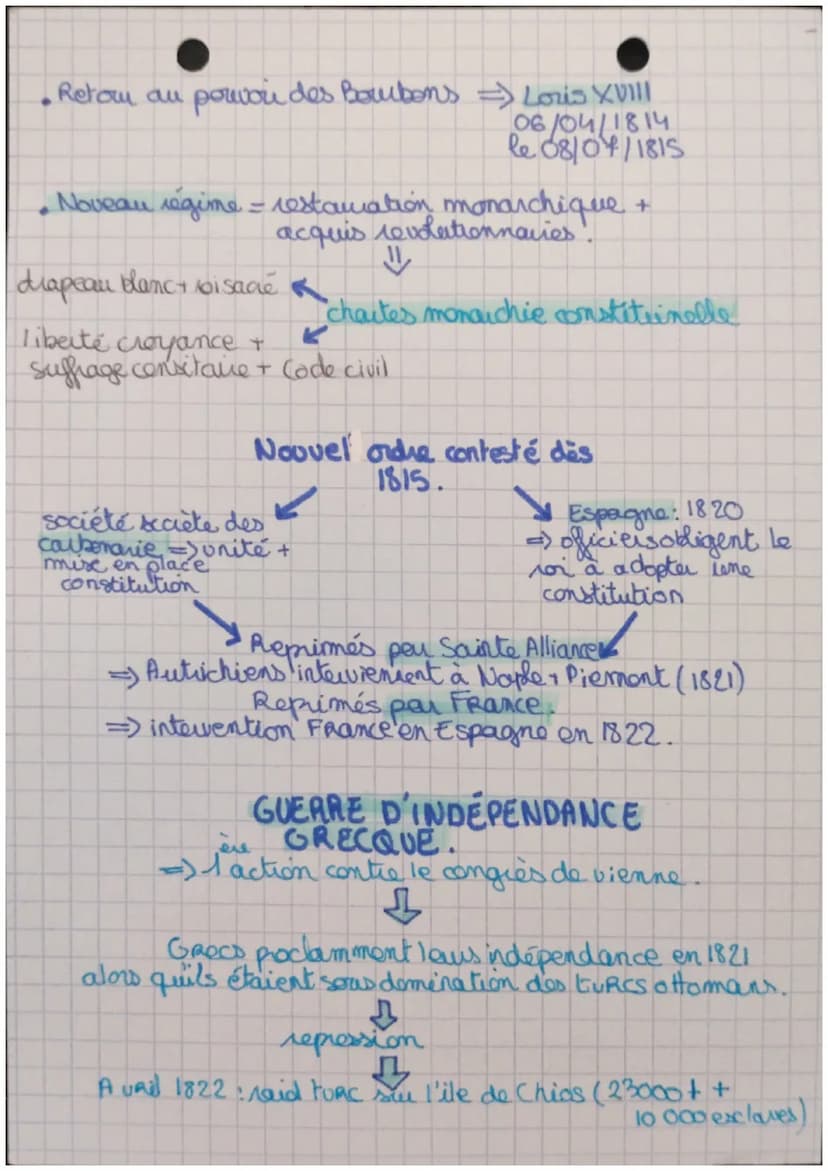 . Retour au pouvoir des Bourbons => Louis XVIII
06/04/1814
le 08/07/1815
. Noveau régime = restauration monarchique +
acquis revolutionnaires.
drapeau blanc + roi sacré
chartes monarchie constituinelle
liberté croyance +
suffrage censitaire + Code civil
Nouvel ordre contesté dès
1815.
société secrète des
carbonarie => unité +
mise en place
constitution
Espagne : 1820
=> officiers obligent le
roi à adopter une
constitution
Reprimés par Sainte Alliance
=> Autrichiens interviennent à Naple + Piemont (1821)
Reprimés par France.
=> intervention France en Espagne en 1822.
GUERRE D'INDÉPENDANCE
GRECQUE.
=> 1ère action contre le congrès de vienne.
Grecs proclamment leurs indépendance en 1821
alors qu'ils étaient sous domination des turcs ottomans.
repression
Avril 1822 : raid turc sur l'ile de Chios (23000 t +
10 000 esclaves)